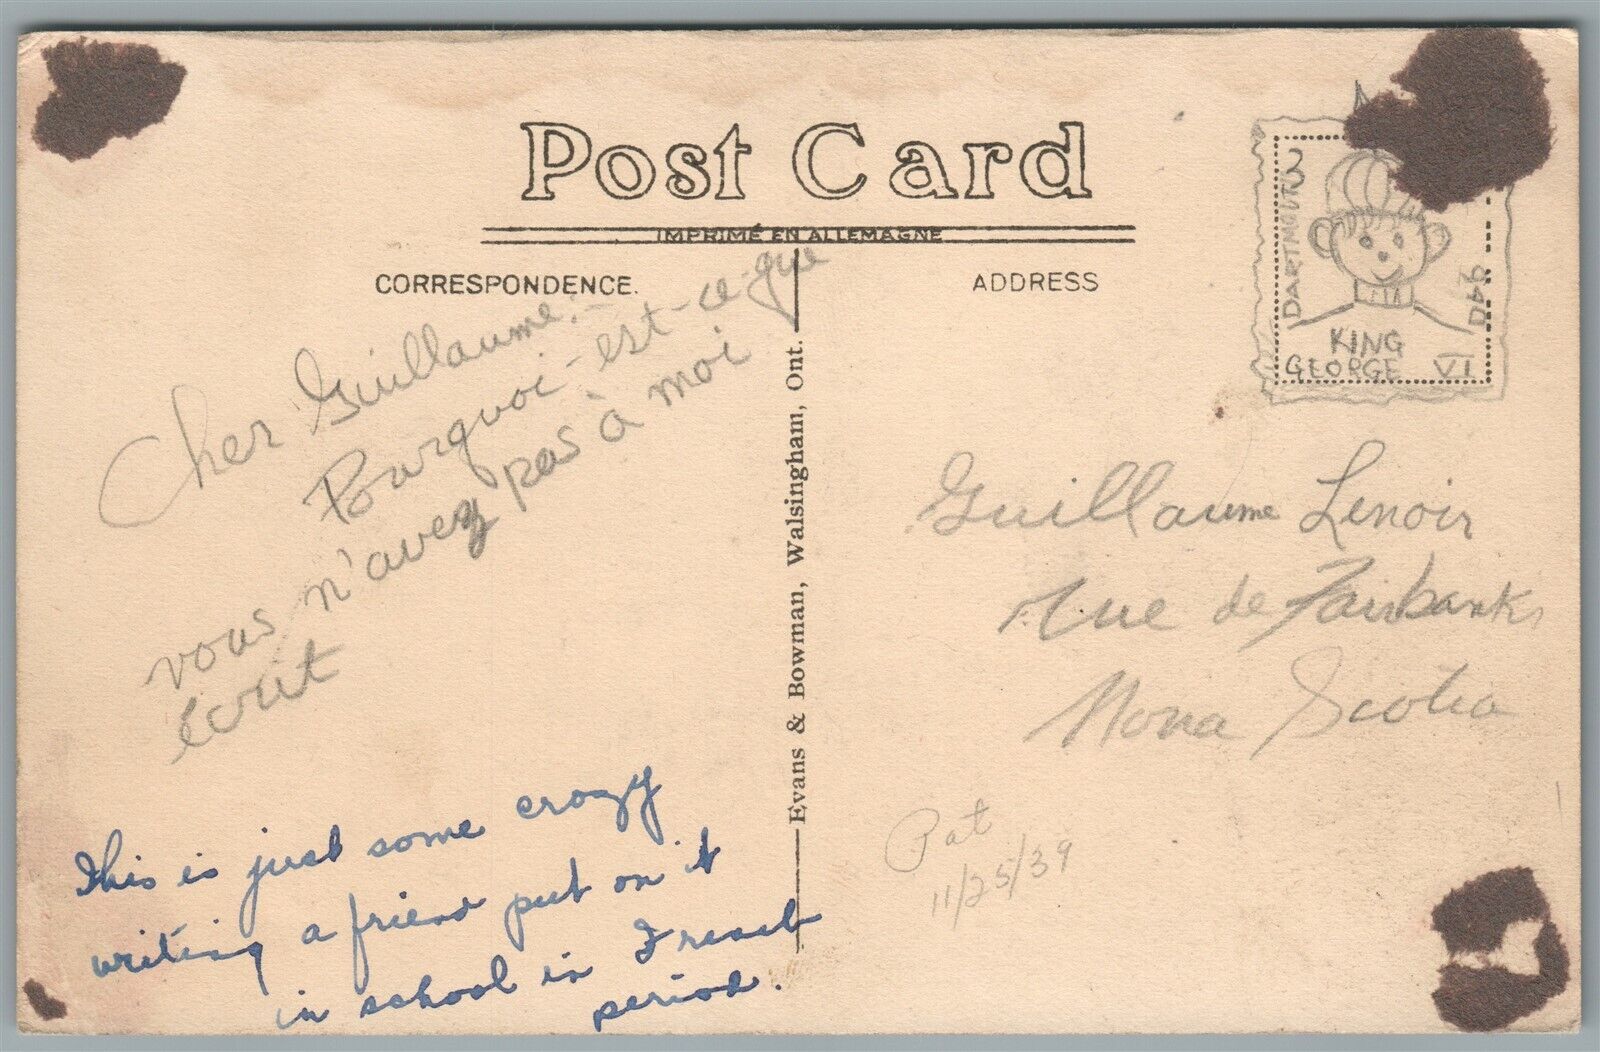 Post Card
IMPRIMÉ EN ALLEMAGNE
CORRESPONDENCE.
ADDRESS
Cher Guillaume:-
Pourquoi-est-ce-que
vous n'avez pas à moi
écrit
This is just some crazy
writing a friend put on it
in school in French
period.
Evans & Bowman, Walsingham, Ont.
3
KING
GEORGE VI
Guillaume Lenoir
Rue de Fairbanks
Nova Scotia
Pat
11/25/39